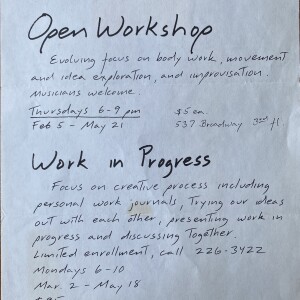 Open Workshop
Evolving focus on body work, movement
and idea exploration, and improvisation.
Musicians welcome.
Thursdays 6-9 pm $5 ea.
Feb 5 - May 21 537 Broadway fl
Work in Progress
Focus on creative process including
personal work journals, Trying our ideas
out with each other, presenting work in
progress and discussing together.
Limited enrollment, call 226-3422
Mondays 6-10
Mar. 2 - May 18